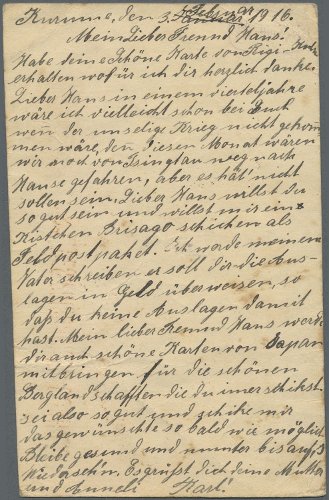 Kurume, den 3. Februar 1916.
Mein Lieber Freund Hans!
Habe deine schöne Karte von Rigi-
erhalten wofür ich dir herzlich danke.
Lieber Hans in einem vierteljahre
wäre ich vielleicht schon bei Euch
wen der unselige Krieg nicht gekom
men wäre, den diesen Monat wären
wir von Tsingtau weg nach
Hause gefahren, aber es hät' nicht
sollen sein. Lieber Hans willst du
so gut sein und willst mir ein
Kistchen Brisago schicken als
Feldpostpaket. Ich werde meinem
Vater schreiben er soll dir die Aus-
lagen in Geld überweisen, so
daß du keine Auslagen damit
hast. Mein lieber Freund Hans werde
dir auch schöne Karten von Japan
mitbringen für die schönen
Berglandschaften die du imer schikst.
sei also so gut und schike mir
das gewünschte so bald wie möglich
Bleibe gesund und munter bis aufs
Wiedersehn. Es grüsst dich deine Mutter
und Anneli Karl!